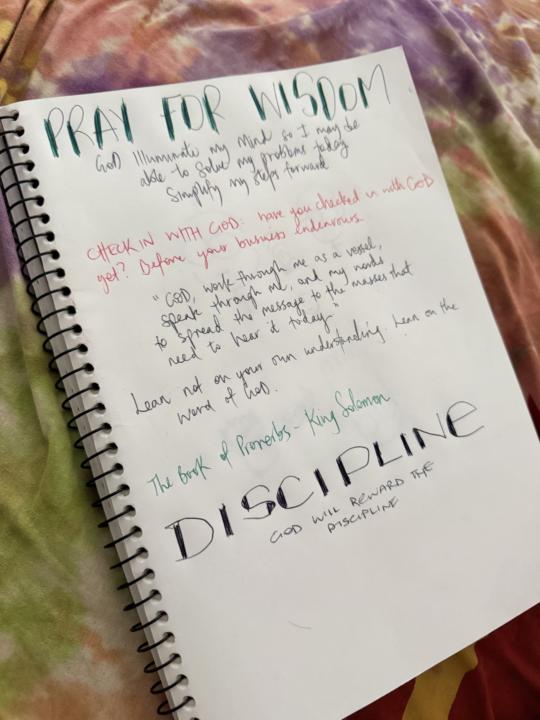 PRAY FOR WISDOM
GOD Illuminate my mind so I may be
able to solve my problems today
Simplify my steps forward
CHECK IN WITH GOD: have you checked in with GOD
yet? Before your business endeavours
"GOD, work through me as a vessel,
speak through me, and my words
to spread the message to the masses that
need to hear it today"
Lean not on your own understanding. Lean on the
word of GOD.
The Book of Proverbs - King Solomon
DISCIPLINE
GOD WILL REWARD THE
DISCIPLINE